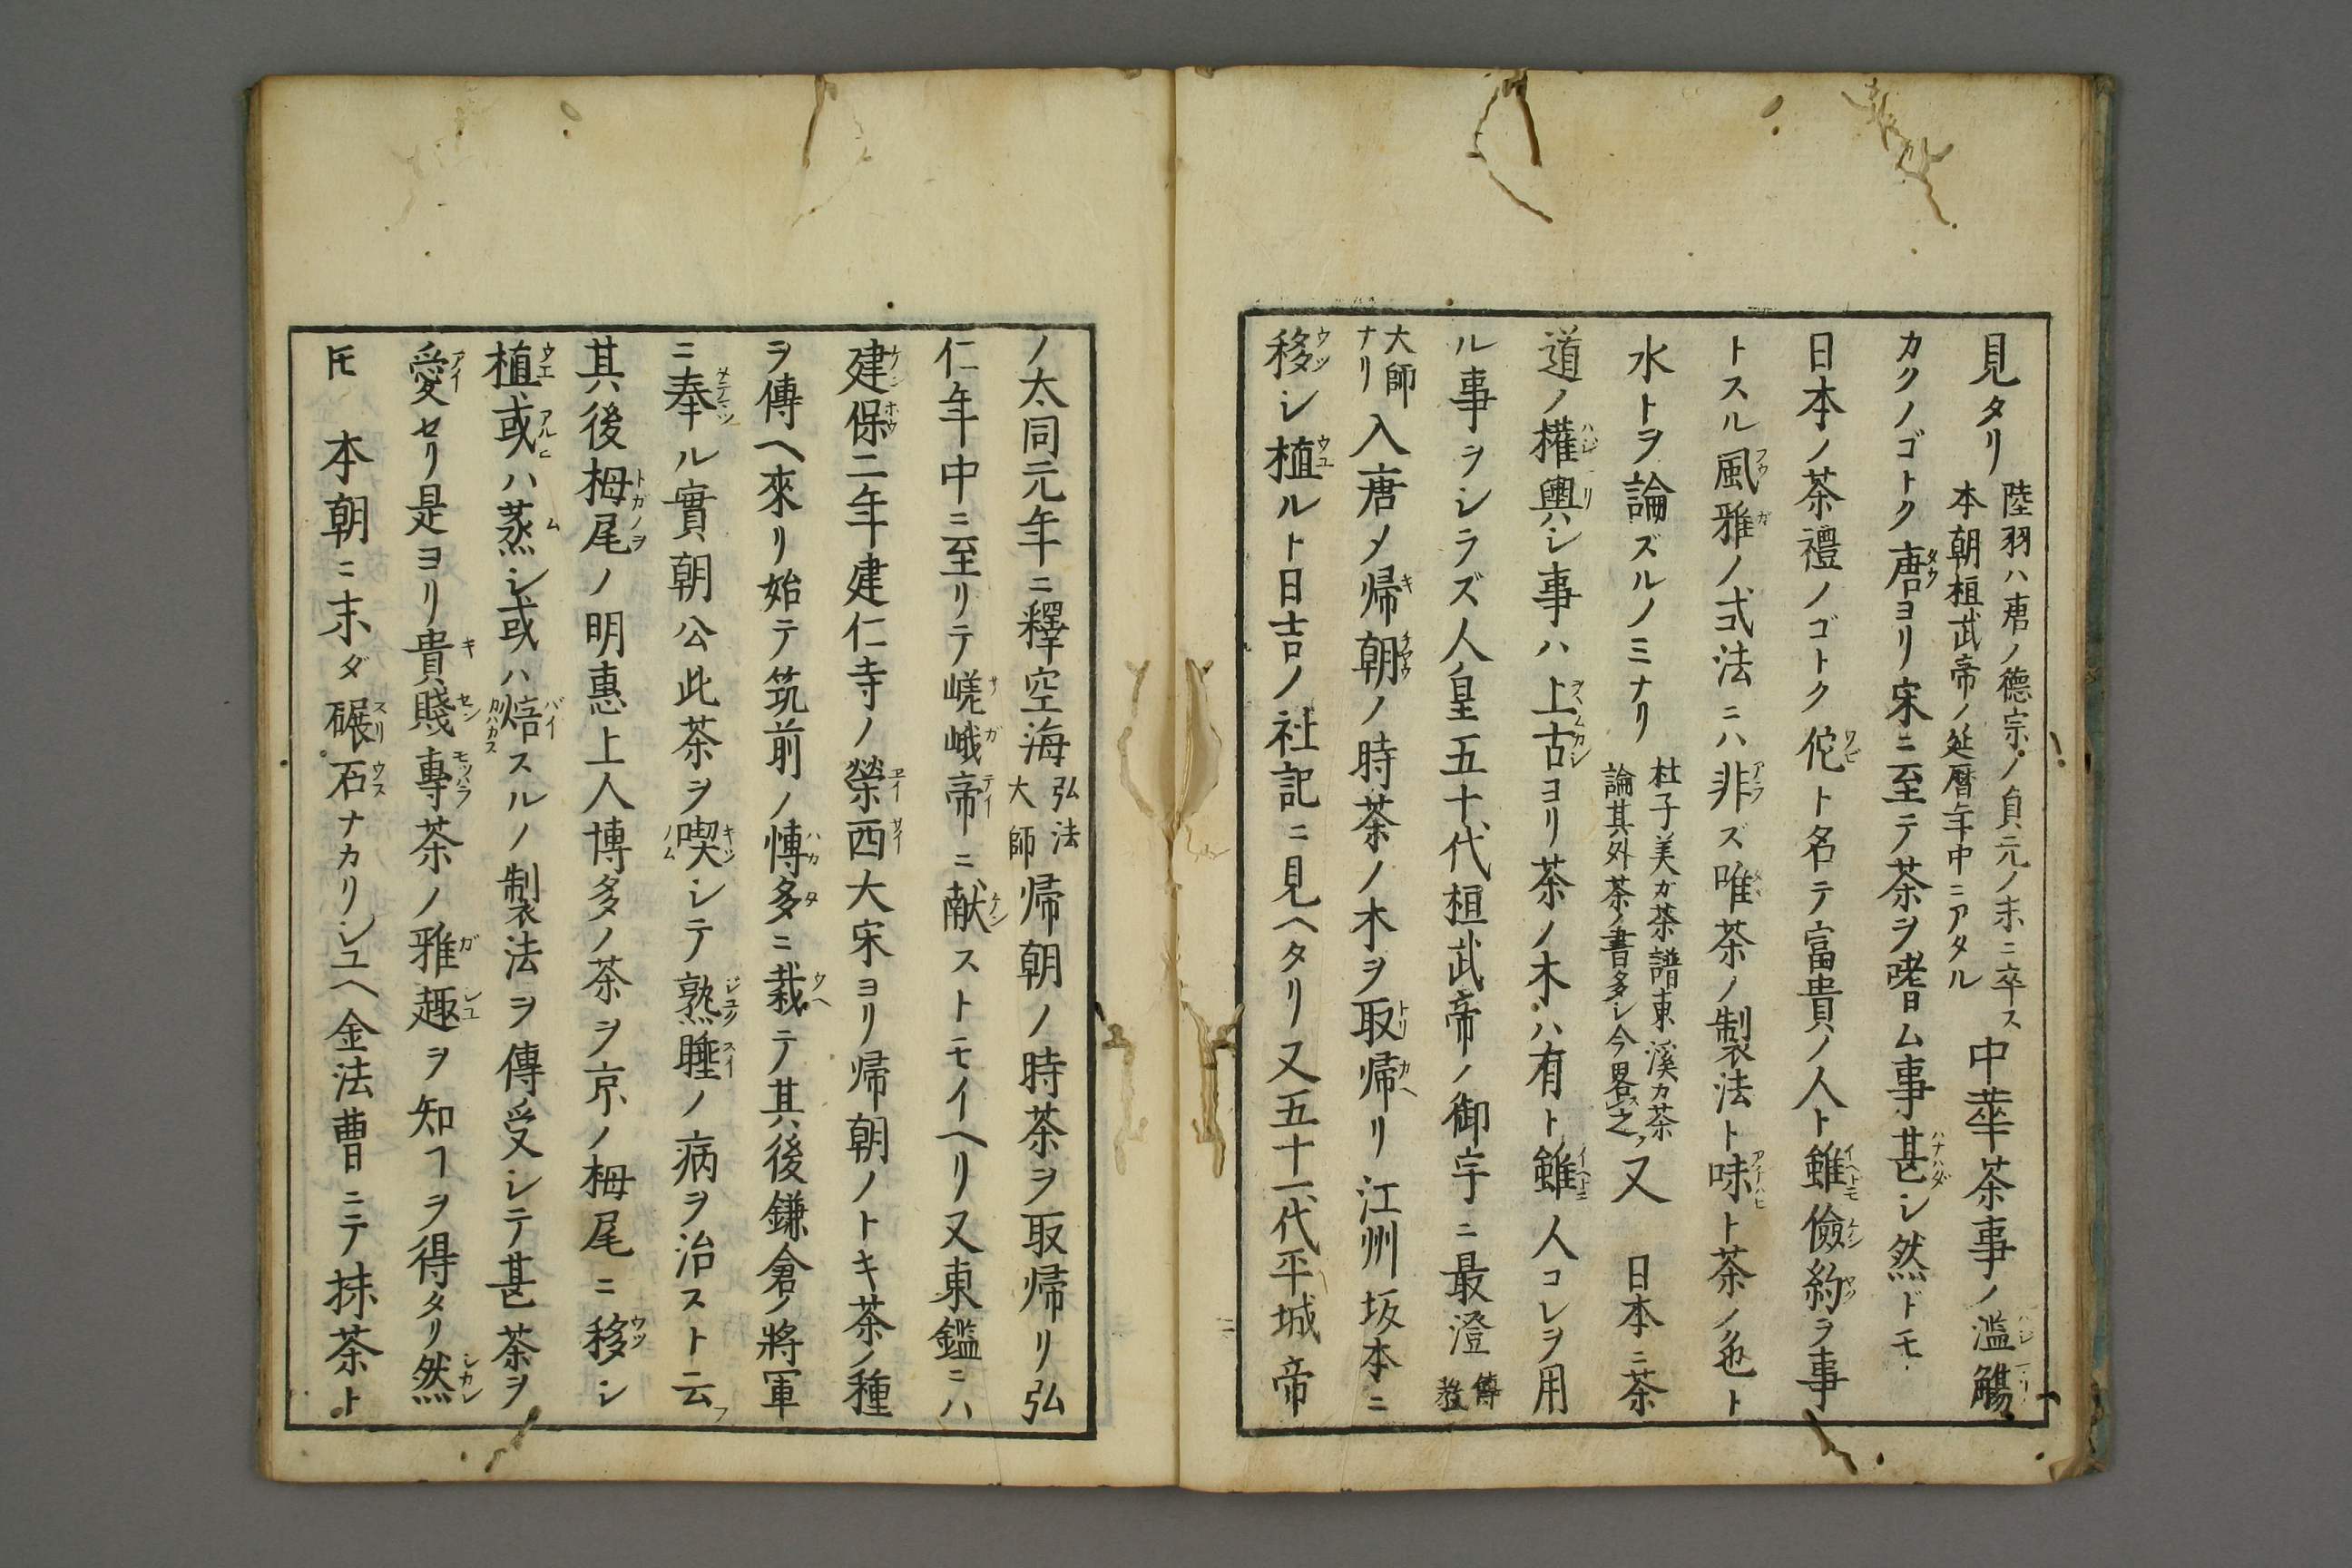 見タリ陸羽ハ唐ノ德宗ノ貞元ノ末ニ卒ス本朝桓武帝ノ延暦年中ニアタル中華茶事ノ濫觴
カクノゴトク唐ヨリ宋ニ至テ茶ヲ嗜ム事甚シ然ドモ
日本ノ茶禮ノゴトク佗ト名テ富貴ノ人ト雖儉約ヲ事
トスル風雅ノ式法ニハ非ズ唯茶ノ製法ト味ト茶ノ色ト
水トヲ論ズルノミナリ杜子美ガ茶譜東溪カ茶論其外茶ノ書多シ今畧之又 日本ニ茶
道ノ權輿ハシ事ハ上古ヨリ茶ノ木ハ有ト雖人コレヲ用
ル事ヲシラズ人皇五十代桓武帝ノ御宇ニ最澄傳教
大師ナリ入唐メ帰朝ノ時茶ノ木ヲ取帰リ江州坂本ニ
移シ植ルト日吉ノ社記ニ見ヘタリ又五十一代平城帝
ノ太同元年ニ釋空海弘法大師帰朝ノ時茶ヲ取帰リ弘
仁年中ニ至リテ嵯峨帝ニ献ストモイヘリ又東鑑ニハ
建保二年建仁寺ノ榮西大宋ヨリ帰朝ノトキ茶ノ種
ヲ傳ヘ來リ始テ筑前ノ愽多ニ栽テ其後鎌倉ノ將軍
ニ奉ル實朝公此茶ヲ喫シテ熟睡ノ病ヲ治スト云フ
其後栂尾ノ明惠上人博多ノ茶ヲ京ノ栂尾ニ移シ
植或ハ蒸シ或ハ焙スルノ製法ヲ傳受シテ甚茶ヲ
愛セリ是ヨリ貴賤專茶ノ雅趣ヲ知ヿヲ得タリ然
𪜈 本朝ニ末ダ碾石ナカリシユヘ金法曹ニテ抹茶ト